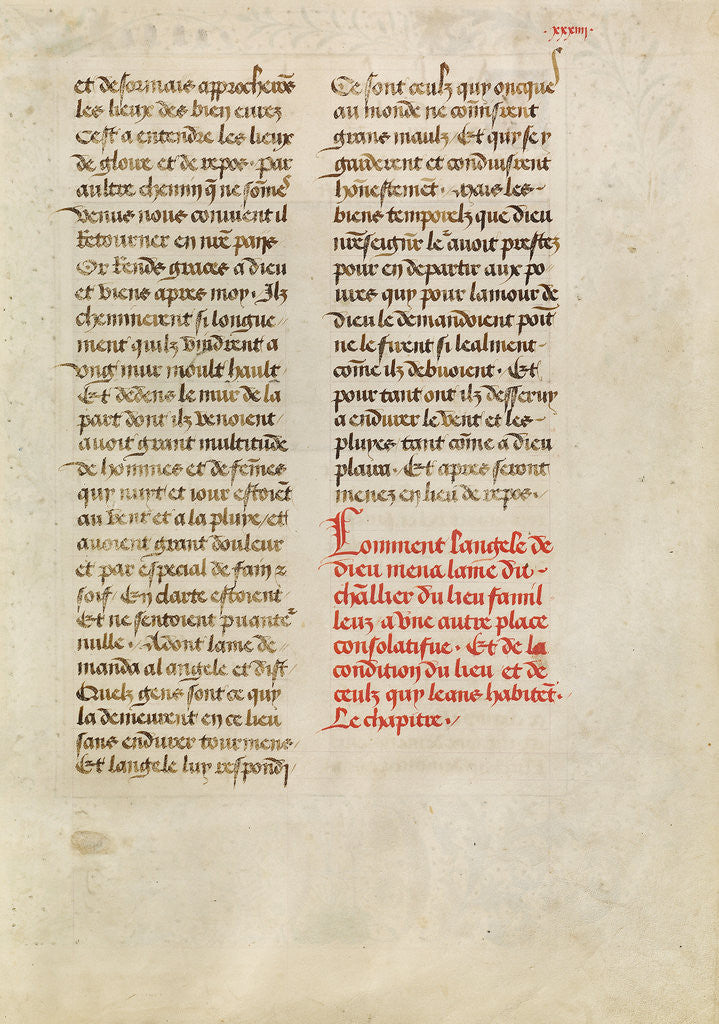 xxxiiij
et desormais approcherōs
les lieux des bien eurez
Cest a entendre les lieux
de gloire et de repos. Par
aultre chemin q̄ ne sōmes
venus nous conuient il
Retourner en nr̄e pays
Or Rends graces a dieu
et viens apres moy. Ilz
cheminerent si longue//
ment quilz vindrent a
vng mur moult hault
Et dedens le mur de la
part dont ilz venoient
auoit grant multitude
de hommes et de fem̄es
qui nuyt et iour estoiēt
au vent et a la pluye/et
auoient grant douleur
et par especial de fain ⁊
soif. En clarte estoient
Et ne sentoient puante^r
nulle. Adont lame de-
manda al angele et dist
Quelz gens sont ce quy
la demeurent en ce lieu
sans endurer tourmens
Et langele luy respondi
Ce sont ceulz quy oncques
au monde ne com̄isrent
grans maulz/Et quy se y
garderent et conduisrent
hōnestemēt. Mais les-
biens temporelz que dieu
nr̄e seign̄r le^r auoit prestez
pour en departir aux po//
ures quy pour lamour de
dieu le demandoient poīt
ne le firent si lealment-
cōme ilz debuoient. Et
pour tant ont ilz desseruy
a endurer le vent et les-
pluyes tant cōme a dieu
plaira. Et apres seront
menez en lieu de repos.
Comment l'angele de
dieu mena lame du-
chāllier du lieu famil
leuz a vne autre place
consolatifue. Et de la
condition du lieu et de
ceulz quy leans habitēt.
Le chapitre.